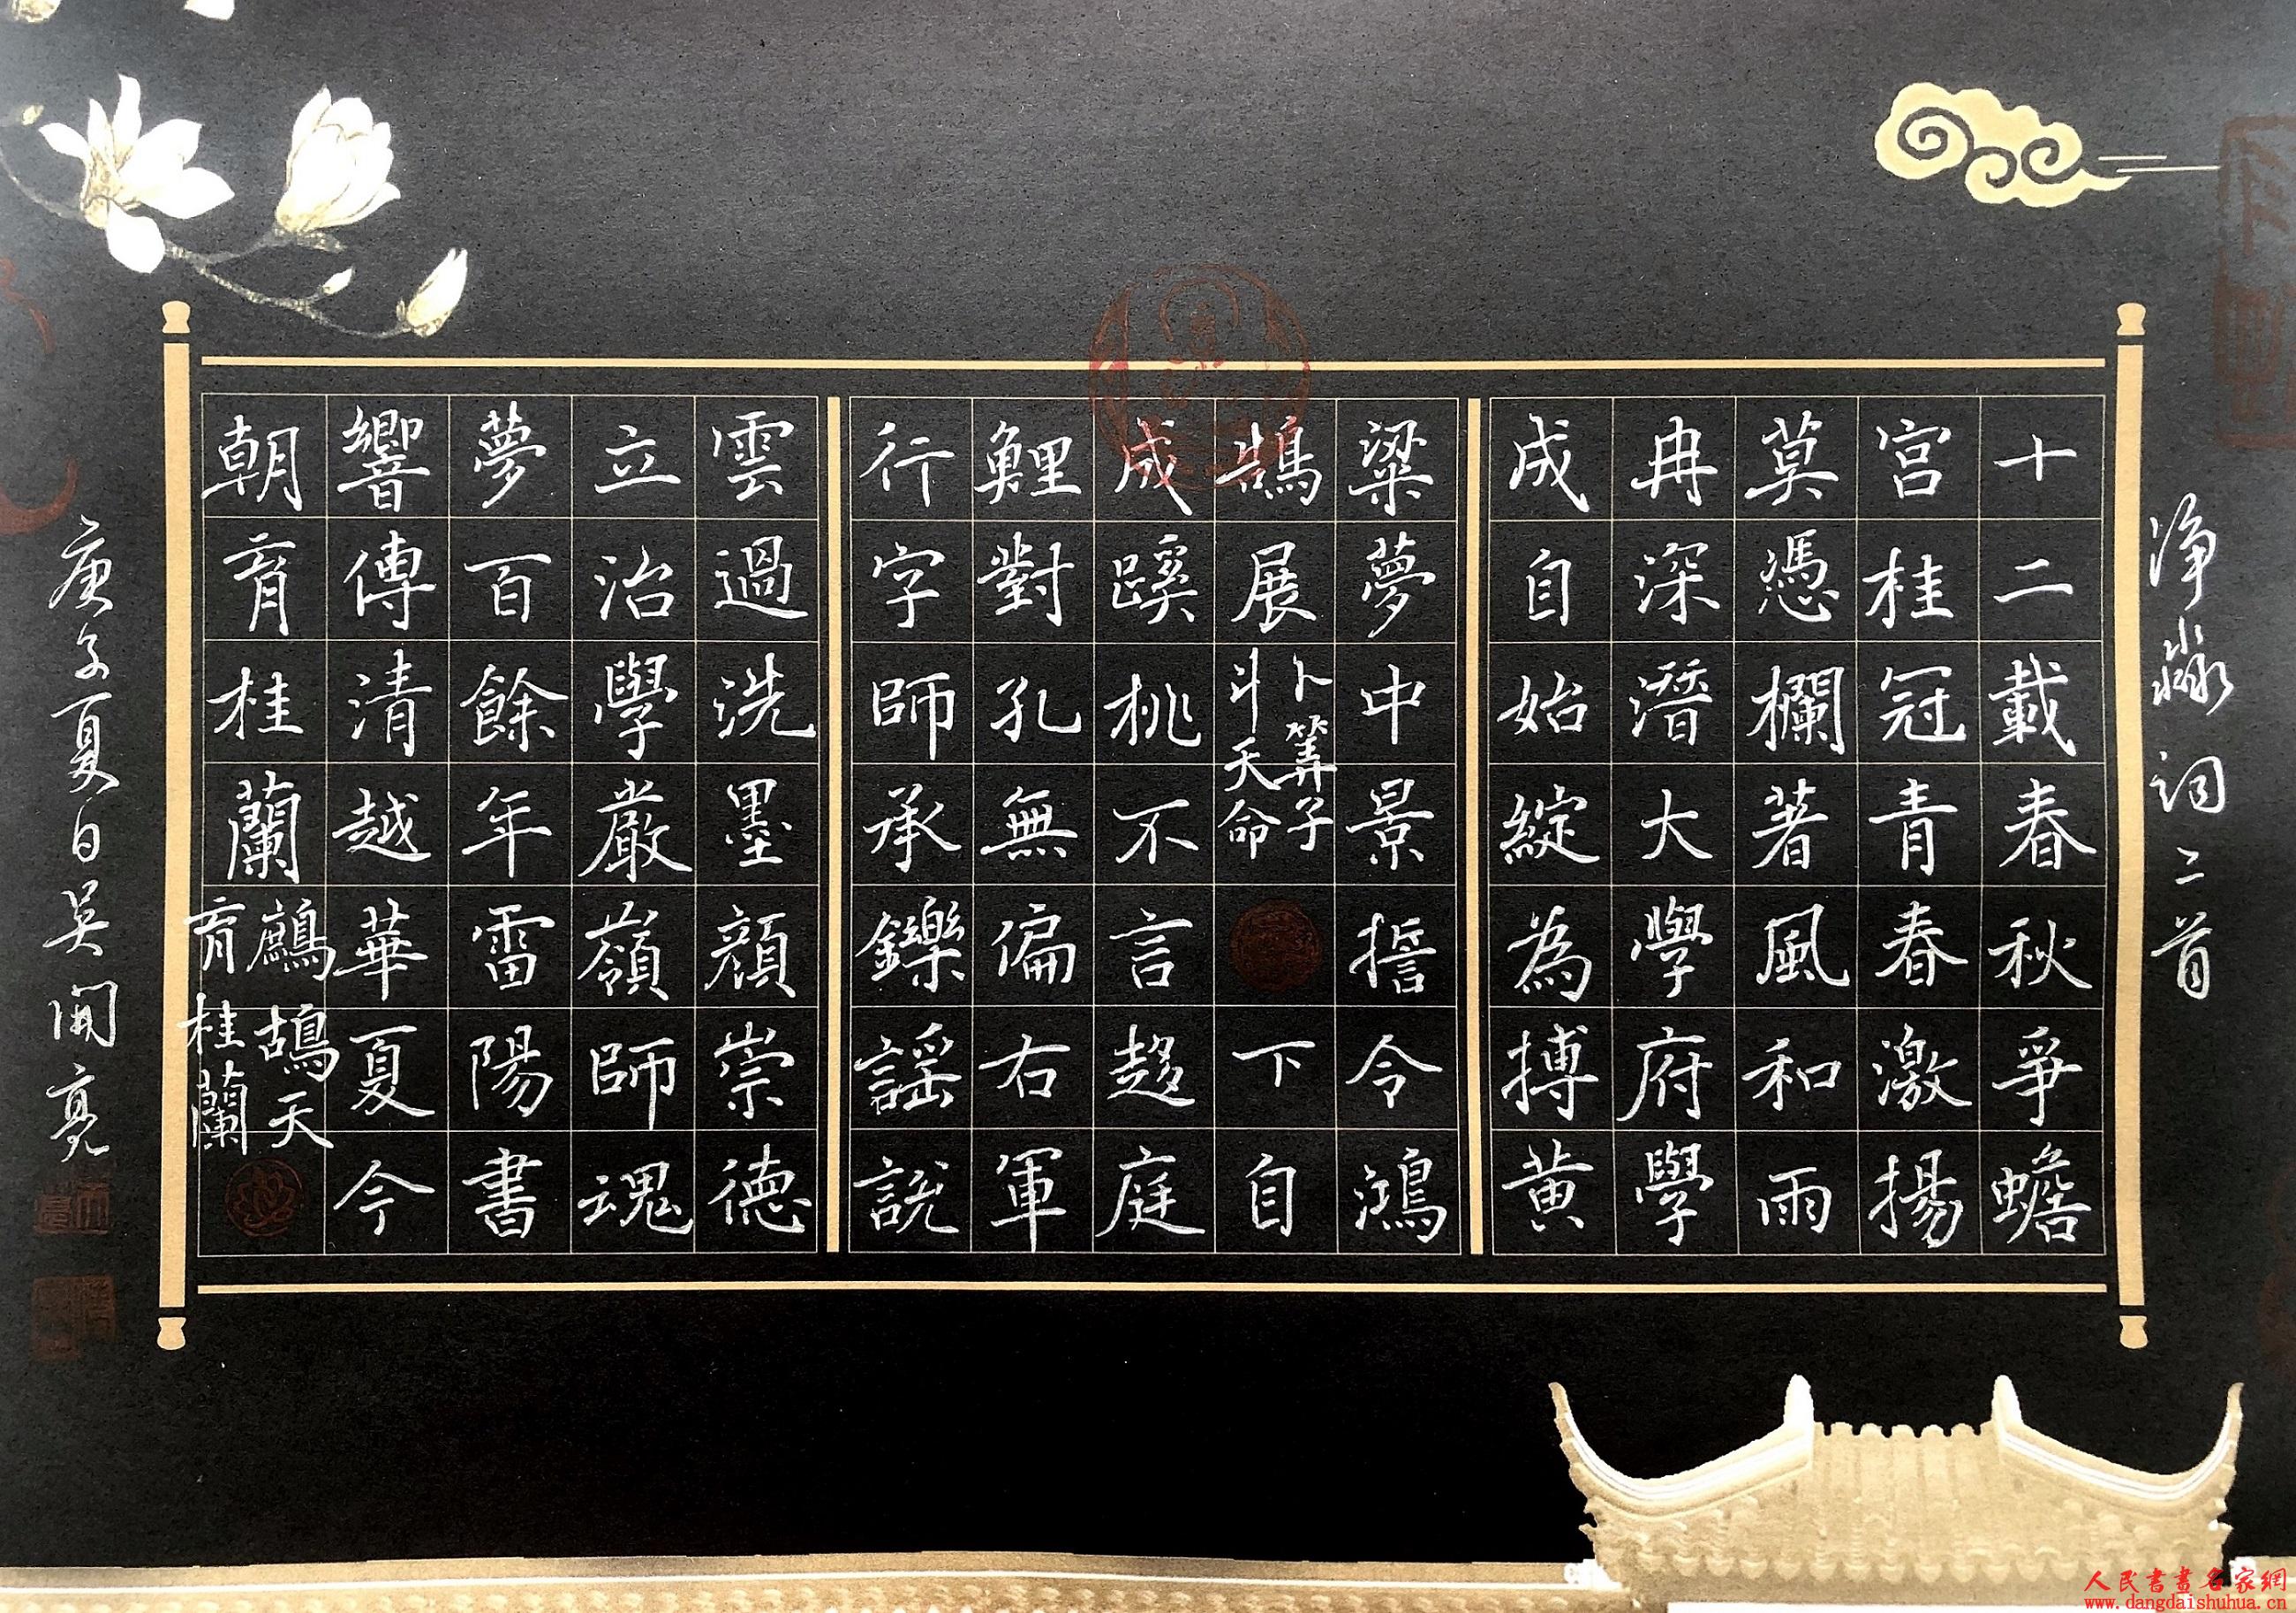 淨淼詞二首
十二載春秋爭蟾
宮桂冠青春激揚
莫憑欄著風和雨
冉深潛大學府學
成自始綻為搏黃
粱夢中景誓令鴻
鵠展卜筭子斗天命下自
成蹊桃不言趍庭
鯉對孔無偏右軍
行字師承鑠謡説
雲過洗墨顏崇德
立治學嚴嶺師魂
夢百餘年雷陽書
響傳清越華夏今
朝育桂蘭鷓鴣天育桂蘭
庚子夏日吴開亮
人民書畫名家網
www.dangdaishuhua.cn